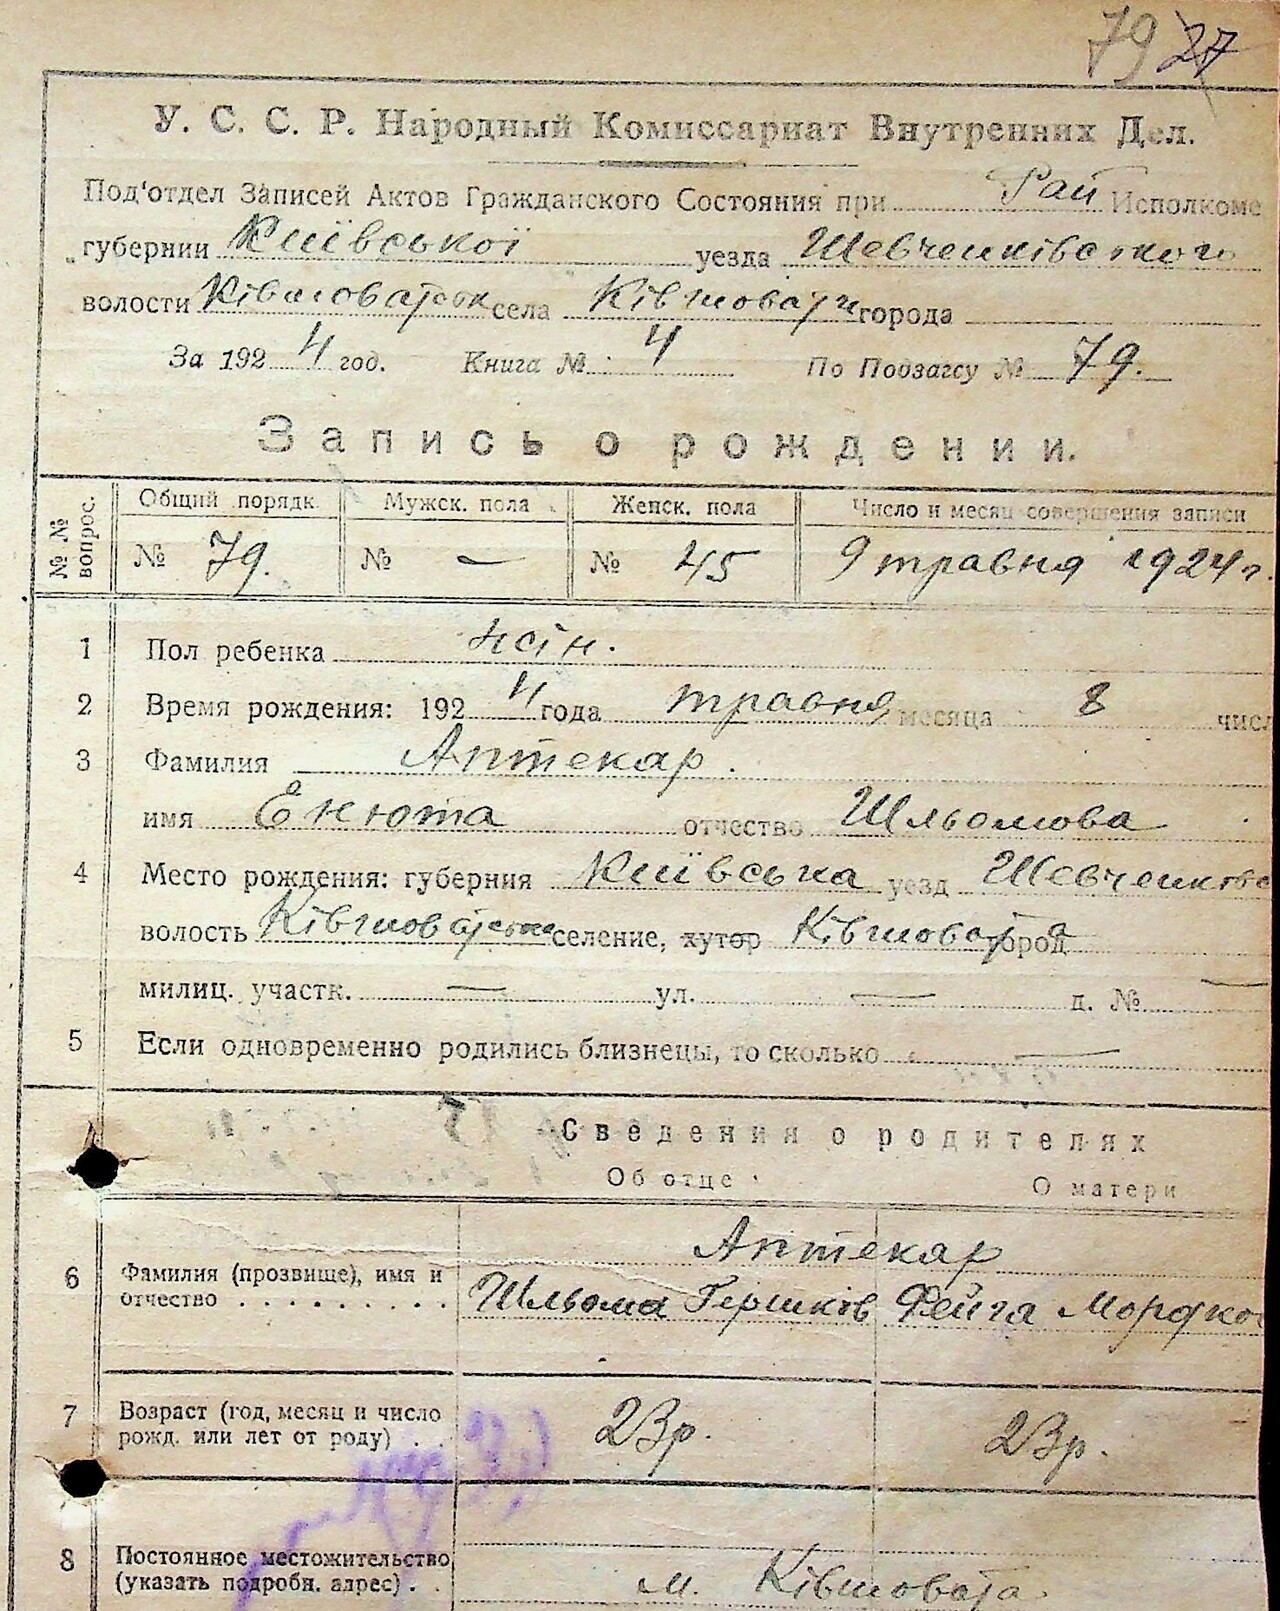 79 27
У. С. С. Р. Народный Комиссариат Внутренних Дел.
Под'отдел Записей Актов Гражданского Состояния при Рай Исполкоме
губернии Київської уезда Шевченківського
волости Ківшоватськ села Ківшовати города
За 1924 год. Книга № 4 По Подзагсу № 79.
Запись о рождении.
№ № вопрос. Общий порядк. Мужск. пола Женск. пола Число и месяц совершения записи
№ 79. № — № 45 9 травня 1924 г.
1 Пол ребенка жін.
2 Время рождения: 1924 года травня месяца 8 числ
3 Фамилия Аптекар.
имя Енюта отчество Шльомова
4 Место рождения: губерния Київська уезд Шевченківс
волость Ківшоватська селение, хутор Ківшовата город
милиц. участк. — ул. — д. № —
5 Если одновременно родились близнецы, то сколько —
Сведения о родителях
Об отце О матери
Аптекар
6 Фамилия (прозвище), имя и
отчество . . . . . . . . . Шльома Гершков Фейга Мордко
7 Возраст (год, месяц и число
рожд. или лет от роду) . . 23 р. 23 р.
8 Постоянное местожительство
(указать подробн. адрес) . . м. Ківшовата